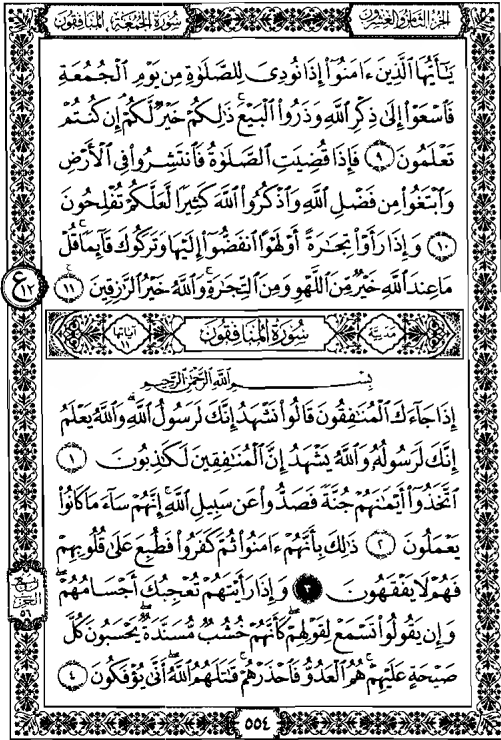 الجزء الثامن والعشرون
سورة الجمعة، المنافقون
يَٰٓأَيُّهَا ٱلَّذِينَ ءَامَنُوٓا۟ إِذَا نُودِىَ لِلصَّلَوٰةِ مِن يَوْمِ ٱلْجُمُعَةِ
فَٱسْعَوْا۟ إِلَىٰ ذِكْرِ ٱللَّهِ وَذَرُوا۟ ٱلْبَيْعَ ۚ ذَٰلِكُمْ خَيْرٌ لَّكُمْ إِن كُنتُمْ
تَعْلَمُونَ ٩ فَإِذَا قُضِيَتِ ٱلصَّلَوٰةُ فَٱنتَشِرُوا۟ فِى ٱلْأَرْضِ
وَٱبْتَغُوا۟ مِن فَضْلِ ٱللَّهِ وَٱذْكُرُوا۟ ٱللَّهَ كَثِيرًا لَّعَلَّكُمْ تُفْلِحُونَ
١٠ وَإِذَا رَأَوْا۟ تِجَٰرَةً أَوْ لَهْوًا ٱنفَضُّوٓا۟ إِلَيْهَا وَتَرَكُوكَ قَآئِمًا ۚ قُلْ
مَا عِندَ ٱللَّهِ خَيْرٌ مِّنَ ٱللَّهْوِ وَمِنَ ٱلتِّجَٰرَةِ ۚ وَٱللَّهُ خَيْرُ ٱلرَّٰزِقِينَ ١١
ع ١٢
مدنية
سورة المنافقون
آياتها ١١
بِسْمِ ٱللَّهِ ٱلرَّحْمَٰنِ ٱلرَّحِيمِ
إِذَا جَآءَكَ ٱلْمُنَٰفِقُونَ قَالُوا۟ نَشْهَدُ إِنَّكَ لَرَسُولُ ٱللَّهِ ۗ وَٱللَّهُ يَعْلَمُ
إِنَّكَ لَرَسُولُهُۥ وَٱللَّهُ يَشْهَدُ إِنَّ ٱلْمُنَٰفِقِينَ لَكَٰذِبُونَ ١
ٱتَّخَذُوٓا۟ أَيْمَٰنَهُمْ جُنَّةً فَصَدُّوا۟ عَن سَبِيلِ ٱللَّهِ ۚ إِنَّهُمْ سَآءَ مَا كَانُوا۟
يَعْمَلُونَ ٢ ذَٰلِكَ بِأَنَّهُمْ ءَامَنُوا۟ ثُمَّ كَفَرُوا۟ فَطُبِعَ عَلَىٰ قُلُوبِهِمْ
فَهُمْ لَا يَفْقَهُونَ ٣ وَإِذَا رَأَيْتَهُمْ تُعْجِبُكَ أَجْسَامُهُمْ ۖ
وَإِن يَقُولُوا۟ تَسْمَعْ لِقَوْلِهِمْ ۖ كَأَنَّهُمْ خُشُبٌ مُّسَنَّدَةٌ ۖ يَحْسَبُونَ كُلَّ
صَيْحَةٍ عَلَيْهِمْ ۚ هُمُ ٱلْعَدُوُّ فَٱحْذَرْهُمْ ۚ قَٰتَلَهُمُ ٱللَّهُ ۖ أَنَّىٰ يُؤْفَكُونَ ٤
ربع
٥٦
٥٥٤